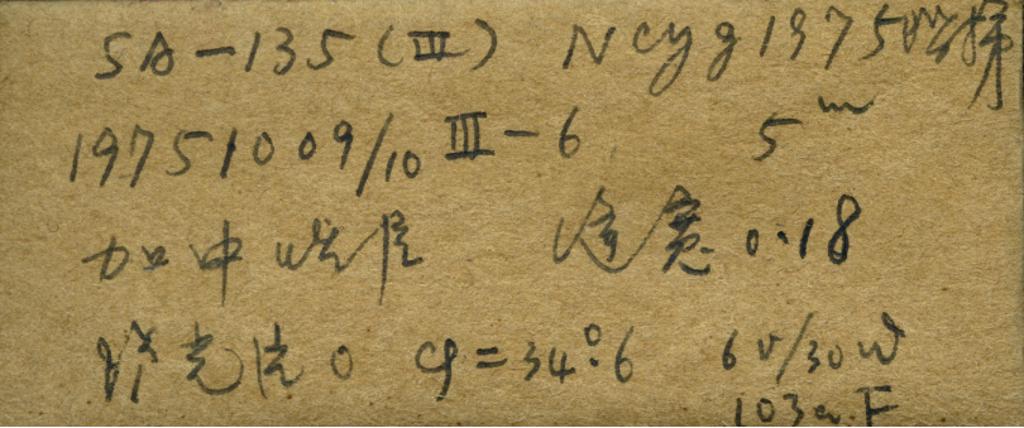 SA-135 (III) N Cyg 1975
19751009/10 III-6 5m
加中 缝宽 0.18
滤光片 0 φ=34°.6 6V/30W
103a.F